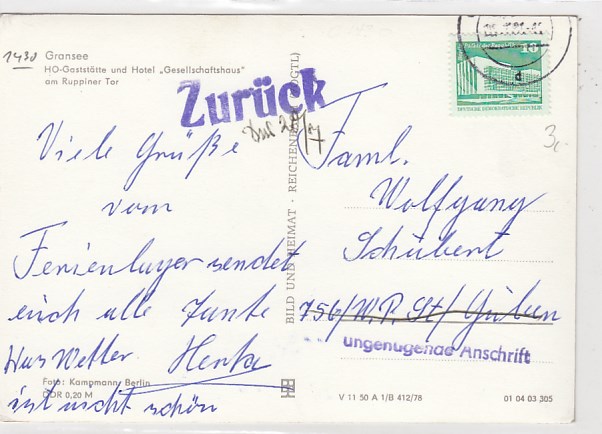 1430
Gransee
HO-Gaststätte und Hotel „Gesellschaftshaus"
am Ruppiner Tor
Zurück
20/7
Viele Grüße
vom
Ferienlager sendet
euch alle Tante
Herta
Das Wetter
ist nicht schön
Foto: Kampmann, Berlin
DDR 0,20 M
BILD UND HEIMAT · REICHENBACH (VOGTL)
10
DEUTSCHE DEMOKRATISCHE REPUBLIK
3,-
Faml.
Wolfgang
Schubert
756/W.P. St/Guben
ungenügende Anschrift
V 11 50 A 1/B 412/78
01 04 03 305